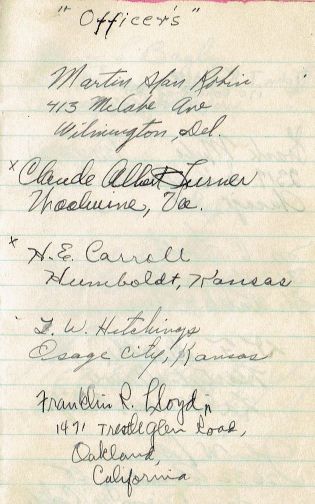 "Officer's"
Martin Alan Robin
413 McCabe Ave
Wilmington, Del.
x Claude Albert Turner
Woolwine, Va.
x H. E. Carroll
Humboldt, Kansas
L. W. Hitchings
Osage City, Kansas
Franklin R. Lloyd jr
1471 Trestle glen Road,
Oakland,
California